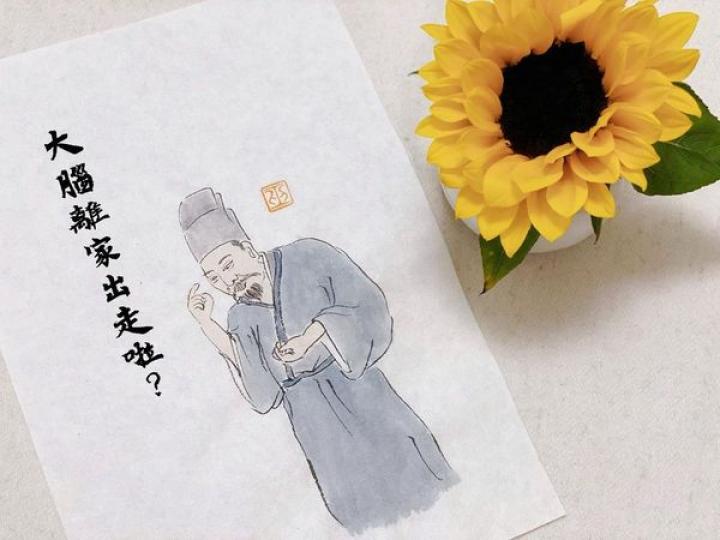 大腦離家出走啦？